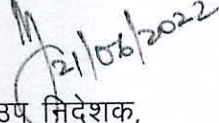 21/06/2022
उप निदेशक,